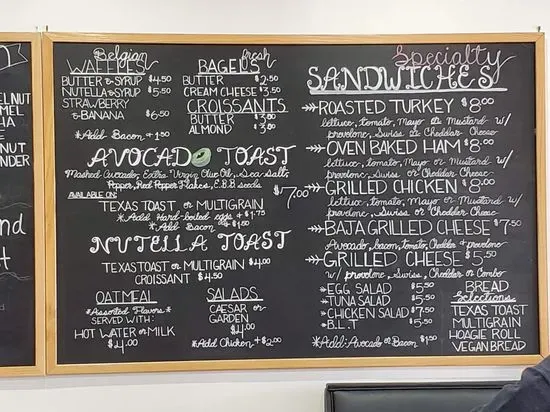 ELNUT
MEL
HA
E
NUT
NDER
nd
H
Belgian
WAFFLES
BUTTER & SYRUP $4.50
NUTELLA & SYRUP $5.50
STRAWBERRY
& BANANA $6.50
*Add Bacon +1.50
fresh
BAGELS
BUTTER $2.50
CREAM CHEESE $3.50
CROISSANTS
BUTTER $3.00
ALMOND $3.50
AVOCADO TOAST
Mashed Avocado, Extra Virgin Olive Oil, Sea Salt,
Pepper, Red Pepper Flakes, E.B.B seeds
$7.00
AVAILABLE ON:
TEXAS TOAST or MULTIGRAIN
*Add Hard-boiled eggs + $1.75
*Add Bacon + $1.50
NUTELLA TOAST
TEXAS TOAST or MULTIGRAIN $4.00
CROISSANT $4.50
OATMEAL
*Assorted Flavors*
SERVED WITH:
HOT WATER or MILK
$4.00
SALADS
CAESAR or
GARDEN
$4.00
*Add Chicken + $2.00
Specialty
SANDWICHES
ROASTED TURKEY $8.00
lettuce, tomato, Mayo or Mustard w/
provolone, Swiss or Cheddar Cheese
OVEN BAKED HAM $8.00
lettuce, tomato, Mayo or Mustard w/
provolone, Swiss or Cheddar Cheese
GRILLED CHICKEN $8.00
lettuce, tomato, Mayo or Mustard w/
provolone, Swiss, or Cheddar Cheese
BAJA GRILLED CHEESE $7.50
Avocado, bacon, tomato, Cheddar + provolone
GRILLED CHEESE $5.50
w/ provolone, Swiss, Cheddar or Combo
*EGG SALAD $5.50
*TUNA SALAD $5.50
*CHICKEN SALAD $7.50
*B.L.T $5.50
*Add: Avocado or Bacon $1.50
BREAD
Selections:
TEXAS TOAST
MULTIGRAIN
HOAGIE ROLL
VEGAN BREAD